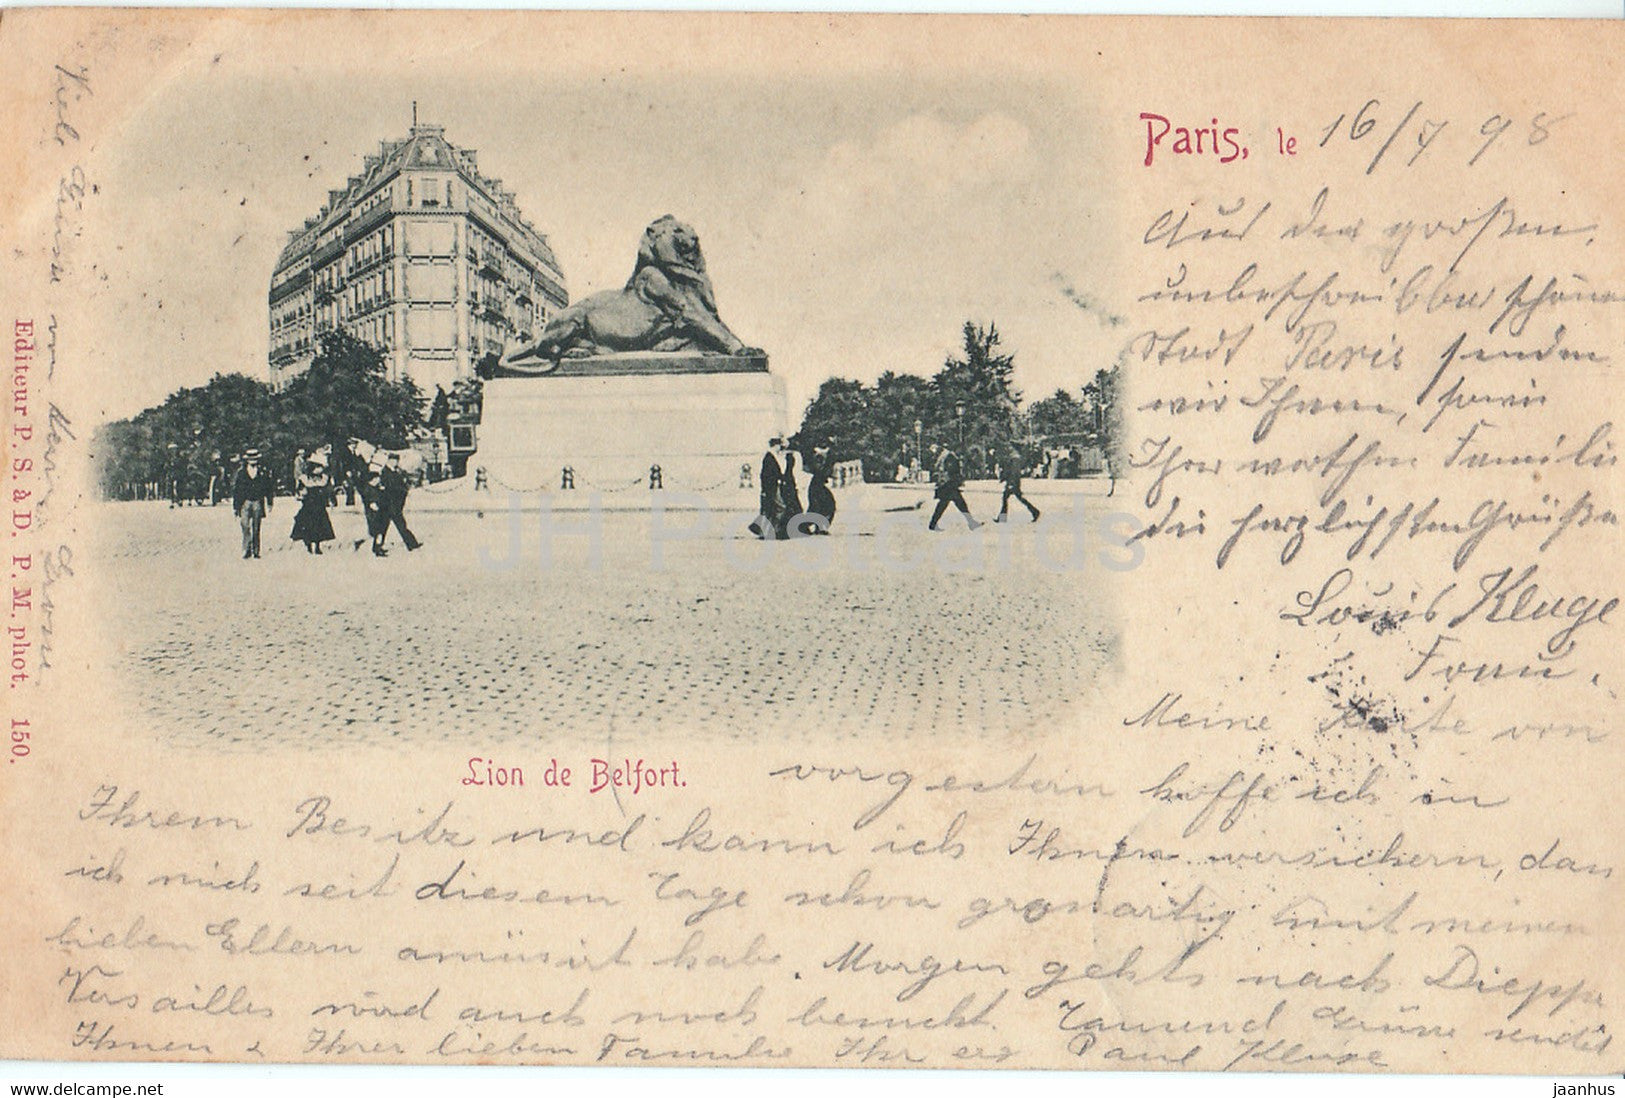 Paris, le 16/7 98
Aus der großen,
unbeschreibbar schönen
Stadt Paris senden
wir Ihnen, sowie
Ihrer werthen Familie
die herzlichsten Grüße
Louis Kluge
& Frau.
Meine Karte von
Lion de Belfort.
vorgestern hoffe ich in
Ihrem Besitz und kann ich Ihnen versichern, dass
ich mich seit diesem Tage schon grossartig mit meinen
lieben Eltern amüsirt habe. Morgen gehts nach Dieppe
Versailles wird auch noch besucht. Tausend Grüsse sendet
Ihnen & Ihrer lieben Familie Ihr erg Paul Kluge
Viele Grüsse von
Editeur P. S. à D. P. M. phot. 150.
JH Postcards
www.delcampe.net
jaanhus